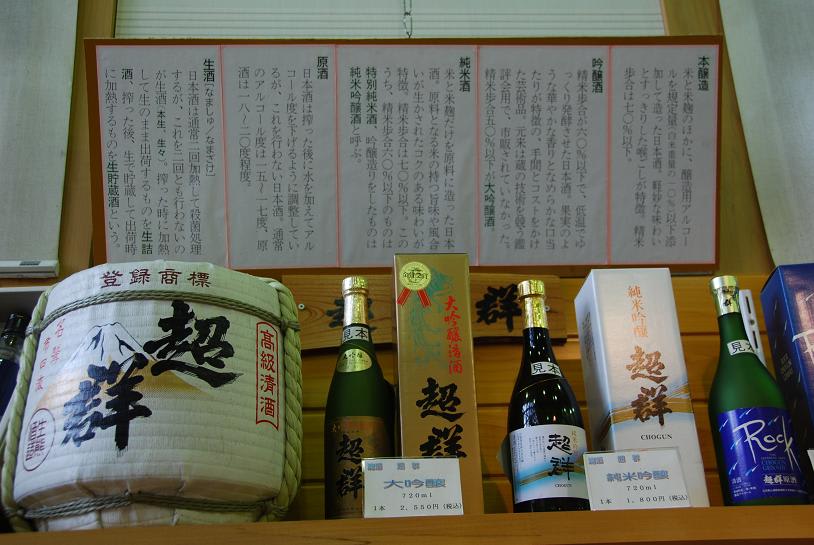 本醸造
米と米麹のほかに、醸造用アルコー
ルを規定量(白米重量の一〇%以下)添
加して造った日本酒。軽妙な味わい
とすっきりした喉ごしが特徴。精米
歩合は七〇%以下。
吟醸酒
精米歩合が六〇%以下で、低温でゆ
っくり発酵させた日本酒。果実のよ
うな華やかな香りとなめらかな口当
たりが特徴の、手間とコストをかけ
た芸術品。元来は蔵の技術を競う鑑
評会用で、市販されていなかった。
精米歩合五〇%以下が大吟醸酒。
純米酒
米と米麹だけを原料に造った日本
酒。原料となる米の持つ旨味や風合
いが生かされたコクのある味わいが
特徴。精米歩合は七〇%以下。この
うち、精米歩合六〇%以下のものは
特別純米酒、吟醸造りをしたものは
純米吟醸酒と呼ぶ。
原酒
日本酒は搾った後に水を加えてアル
コール度を下げるように調整してい
るが、これを行わない日本酒。通常
のアルコール度は一五〜一七度、原
酒は一八〜二〇度程度。
生酒(なましゅ/なまざけ)
日本酒は通常二回加熱して殺菌処理
するが、これを二回とも行わないの
が生酒(本生、生々)。搾った時に加熱
して生のまま出荷するものを生詰
酒、搾った後、生で貯蔵して出荷時
に加熱するものを生貯蔵酒という。
登録商標
超群
高級清酒
見本
大吟醸
超群
大吟醸清酒
超群
群
見本
超群
CHOGUN
純米吟醸
超群
CHOGUN
見本
Rock
CHOGUN
GENSHU
超群原酒
清酒
清酒 超群
大吟醸
720ml
1本 2,550円(税込)
清酒 超群
純米吟醸
720ml
1本 1,800円(税込)